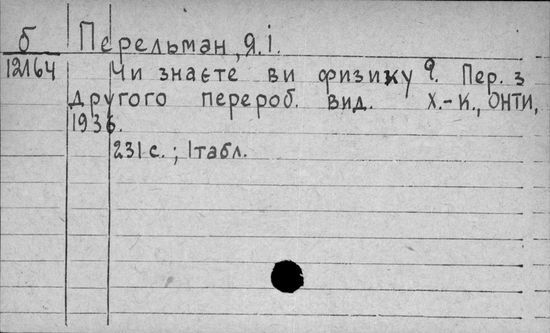 б Перельман, Я.І.
12164 Чи знаєте ви физику? Пер. з
другого перероб. вид. Х.-К., ОНТИ,
1936.
231 с.; 1 табл.